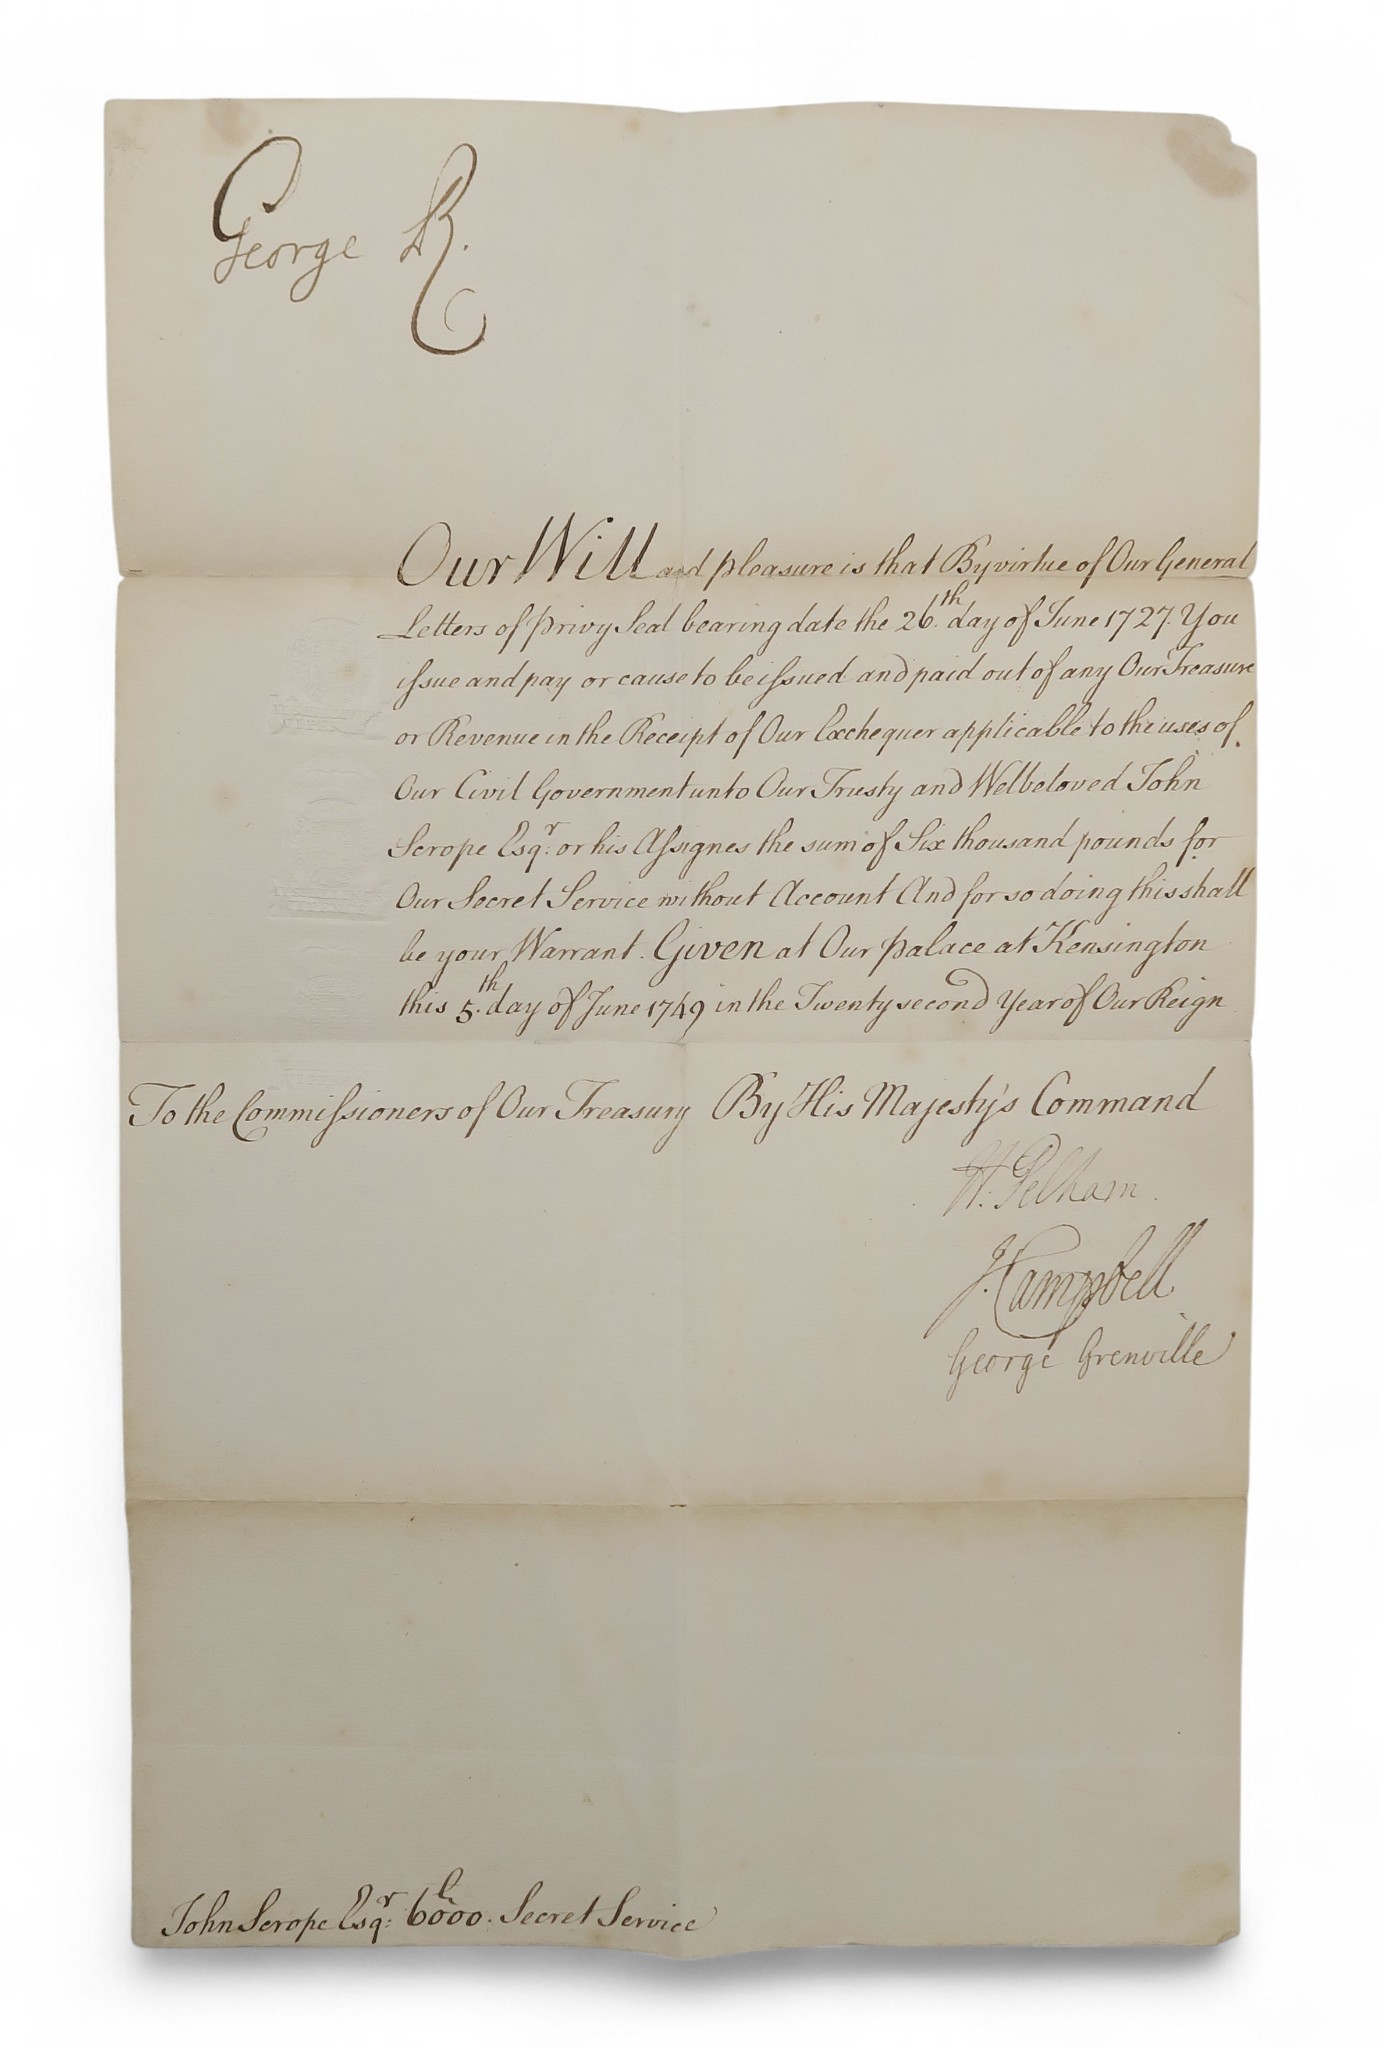 George R.
Our Will and pleasure is that By virtue of Our General
Letters of privy Seal bearing date the 26.th day of June 1727. You
issue and pay or cause to be issued and paid out of any Our Treasure
or Revenue in the Receipt of Our Exchequer applicable to the uses of
Our Civil Government unto Our Trusty and Welbeloved John
Scrope Esqr. or his Assignes the sum of Six thousand pounds for
Our Secret Service without Account And for so doing this shall
be your Warrant. Given at Our palace at Kensington
this 5.th day of June 1749 in the Twenty second Year of Our Reign
To the Commissioners of Our Treasury By His Majesty's Command
H: Pelham.
J. Campbell.
George Grenville
John Scrope Esqr: 6000.l Secret Service